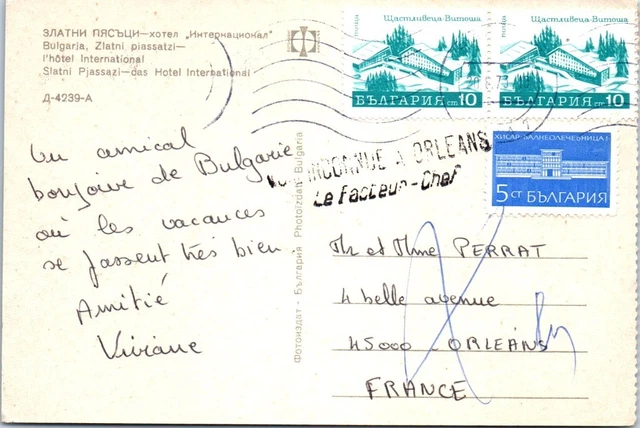 ЗЛАТНИ ПЯСЪЦИ—хотел „Интернационал"
Bulgaria, Zlatni piassatzi—
l'hôtel International
Slatni Pjassazi—das Hotel International
Д-4239-А
Un amical
bonjour de Bulgarie
où les vacances
se passent très bien.
Amitié
Viviane
Фотоиздат - България Photoizdat Bulgaria
поща Щастливеца-Витоша
БЪЛГАРИЯ ст 10
поща Щастливеца-Витоша
БЪЛГАРИЯ ст 10
ХИСАР-БАЛНЕОЛЕЧЕБНИЦА
5 СТ БЪЛГАРИЯ
INCONNUE A ORLEANS
Le Facteur-Chef
Mr et Mme PERRAT
4 belle avenue
45000 ORLEANS
FRANCE